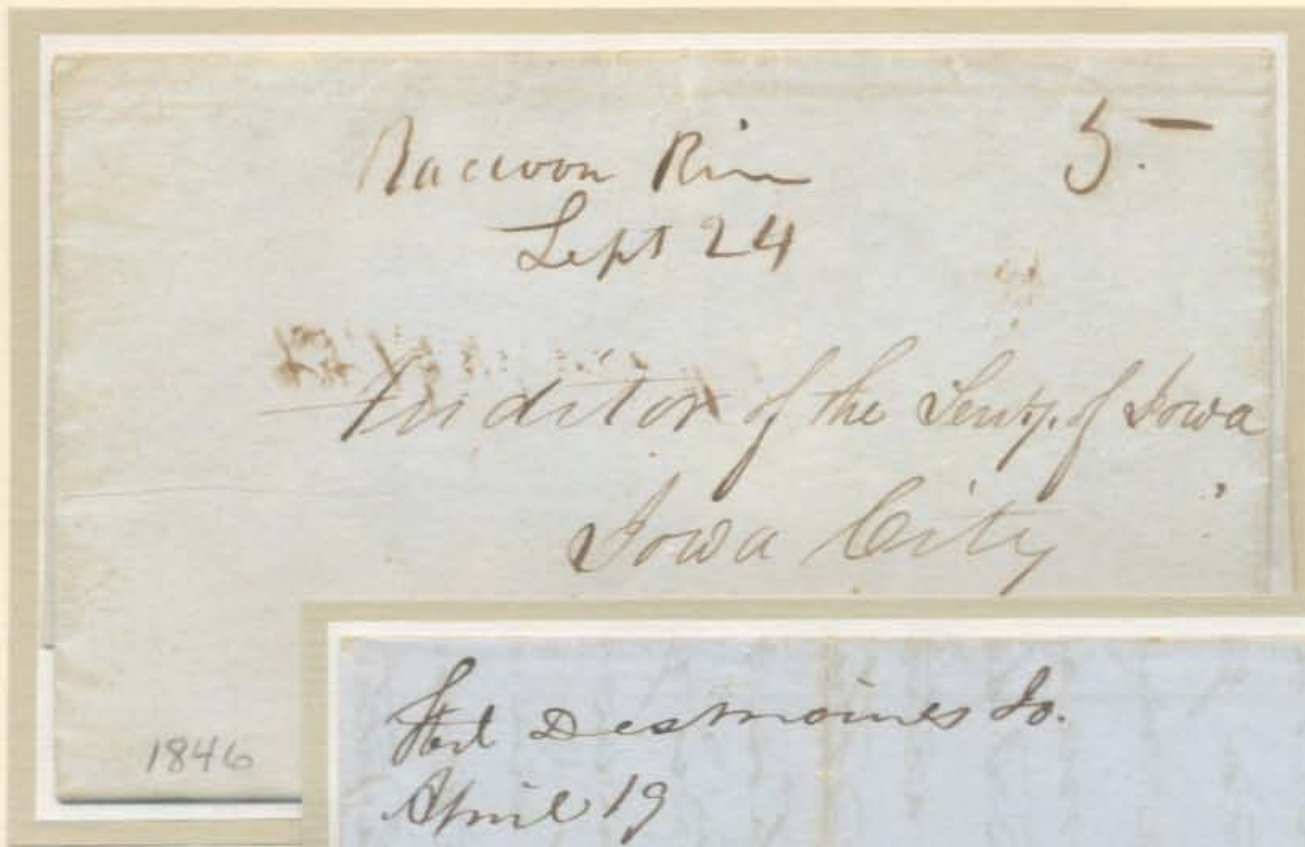 Raccoon River 5.-
Sept 24
Auditor of the Terrty. of Iowa
Iowa City
1846
Fort Desmoines Io.
April 19